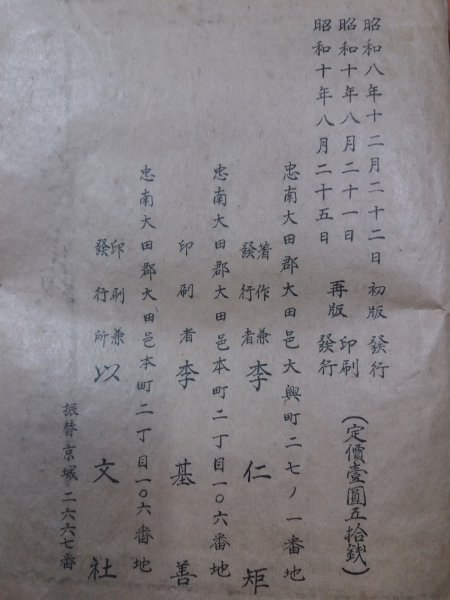 昭和八年十二月二十二日初版發行
昭和十年八月二十一日再版印刷
昭和十年八月二十五日發行
(定價壹圓五拾錢)
忠南大田郡大田邑大興町二七ノ一番地
著作兼
發行者 李仁矩
忠南大田郡大田邑本町二丁目一〇六番地
印刷者 李基善
忠南大田郡大田邑本町二丁目一〇六番地
印刷兼
發行所 以文社
振替京城二六六七番